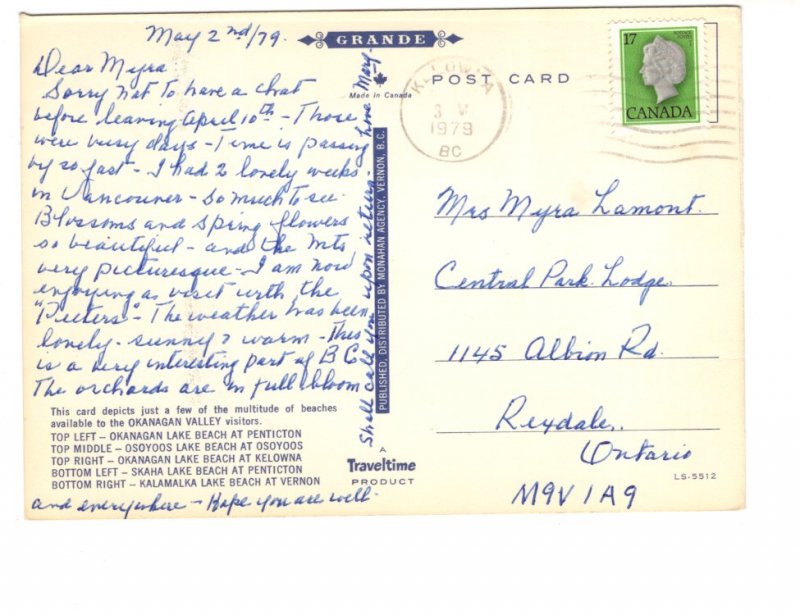 May 2nd/79.
Dear Myra
Sorry not to have a chat
before leaving April 10th - Those
were busy days - Time is passing
by so fast - I had 2 lovely weeks
in Vancouver - So much to see.
Blossoms and spring flowers
so beautiful - and the mts
very picturesque - I am now
enjoying a visit with the
"Pieters" - The weather has been
lovely - sunny & warm - This
is a very interesting part of B C.
The orchards are in full bloom
and everywhere - Hope you are well -
Shall call you upon return - Love May.
This card depicts just a few of the multitude of beaches
available to the OKANAGAN VALLEY visitors.
TOP LEFT – OKANAGAN LAKE BEACH AT PENTICTON
TOP MIDDLE – OSOYOOS LAKE BEACH AT OSOYOOS
TOP RIGHT – OKANAGAN LAKE BEACH AT KELOWNA
BOTTOM LEFT – SKAHA LAKE BEACH AT PENTICTON
BOTTOM RIGHT – KALAMALKA LAKE BEACH AT VERNON
GRANDE
Made in Canada
PUBLISHED, DISTRIBUTED BY MONAHAN AGENCY, VERNON, B.C.
A
Traveltime
PRODUCT
POST CARD
KELOWNA
3 V
1979
BC
17
CANADA
Mrs Myra Lamont.
Central Park Lodge.
1145 Albion Rd.
Rexdale,
Ontario
M9V 1A9
LS-5512